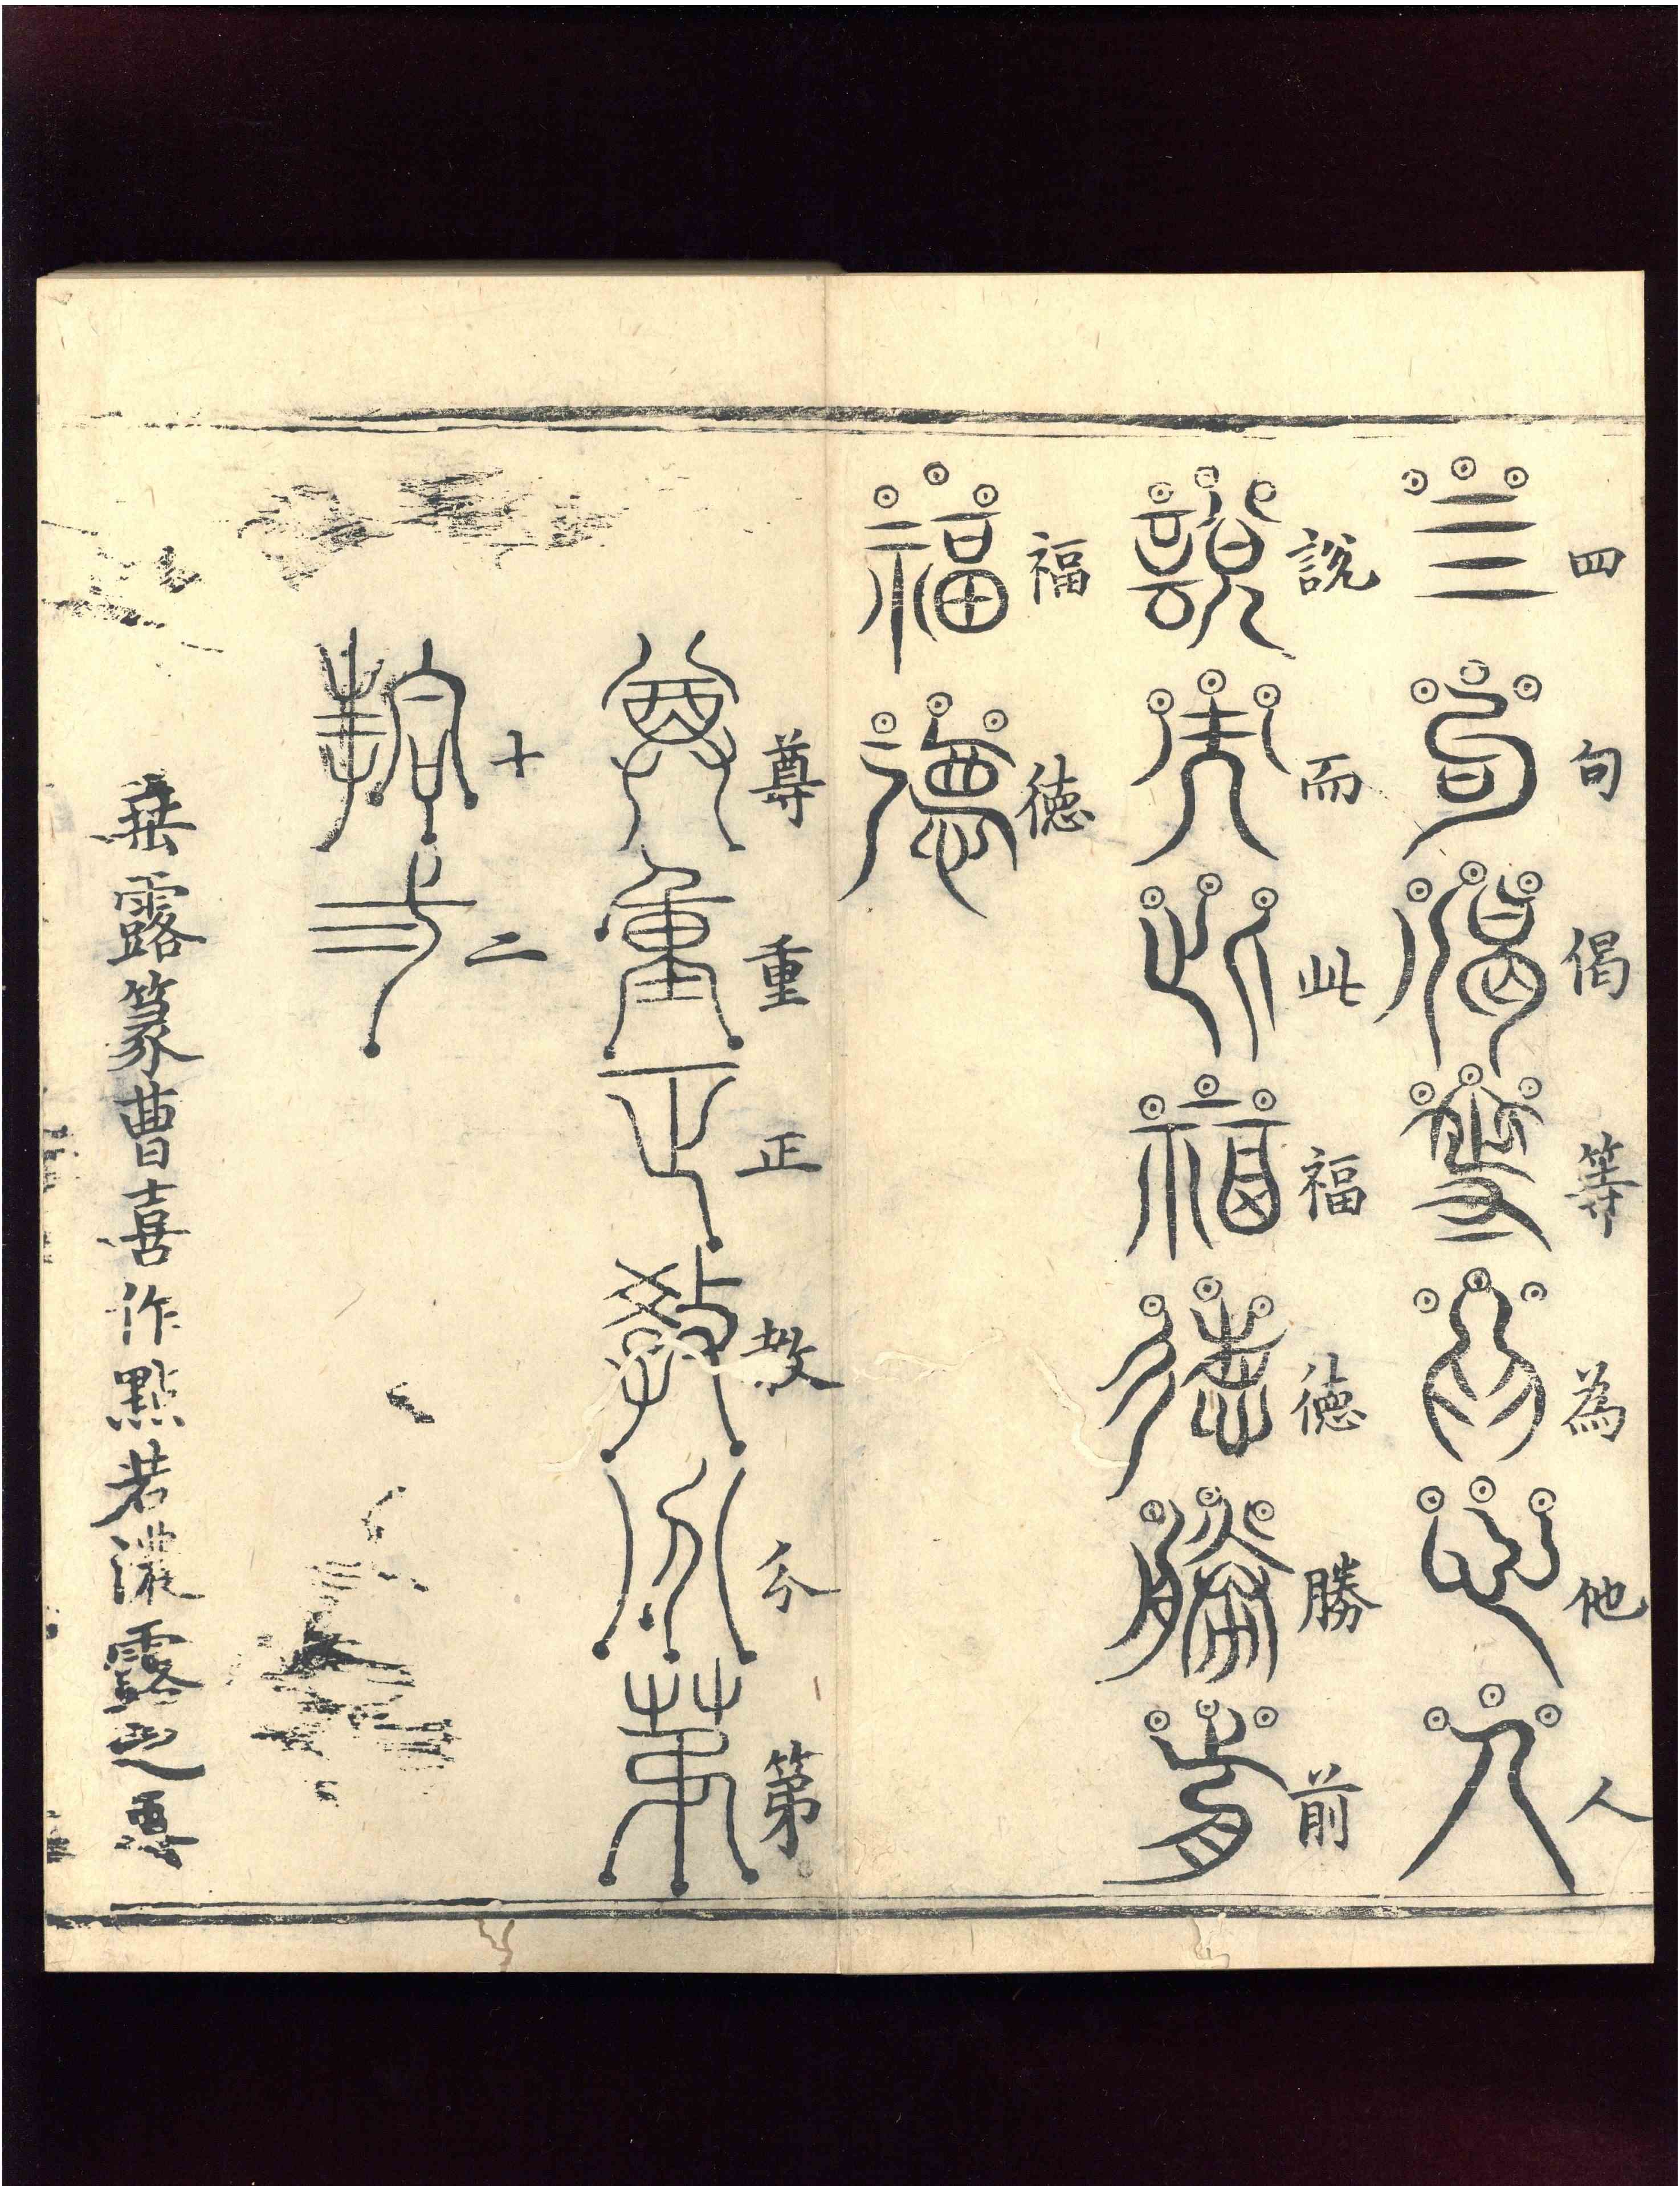 四句偈等為他人
說而此福德勝前
福德
尊重正教分第
十二
垂露篆曹喜作點若濃露之垂